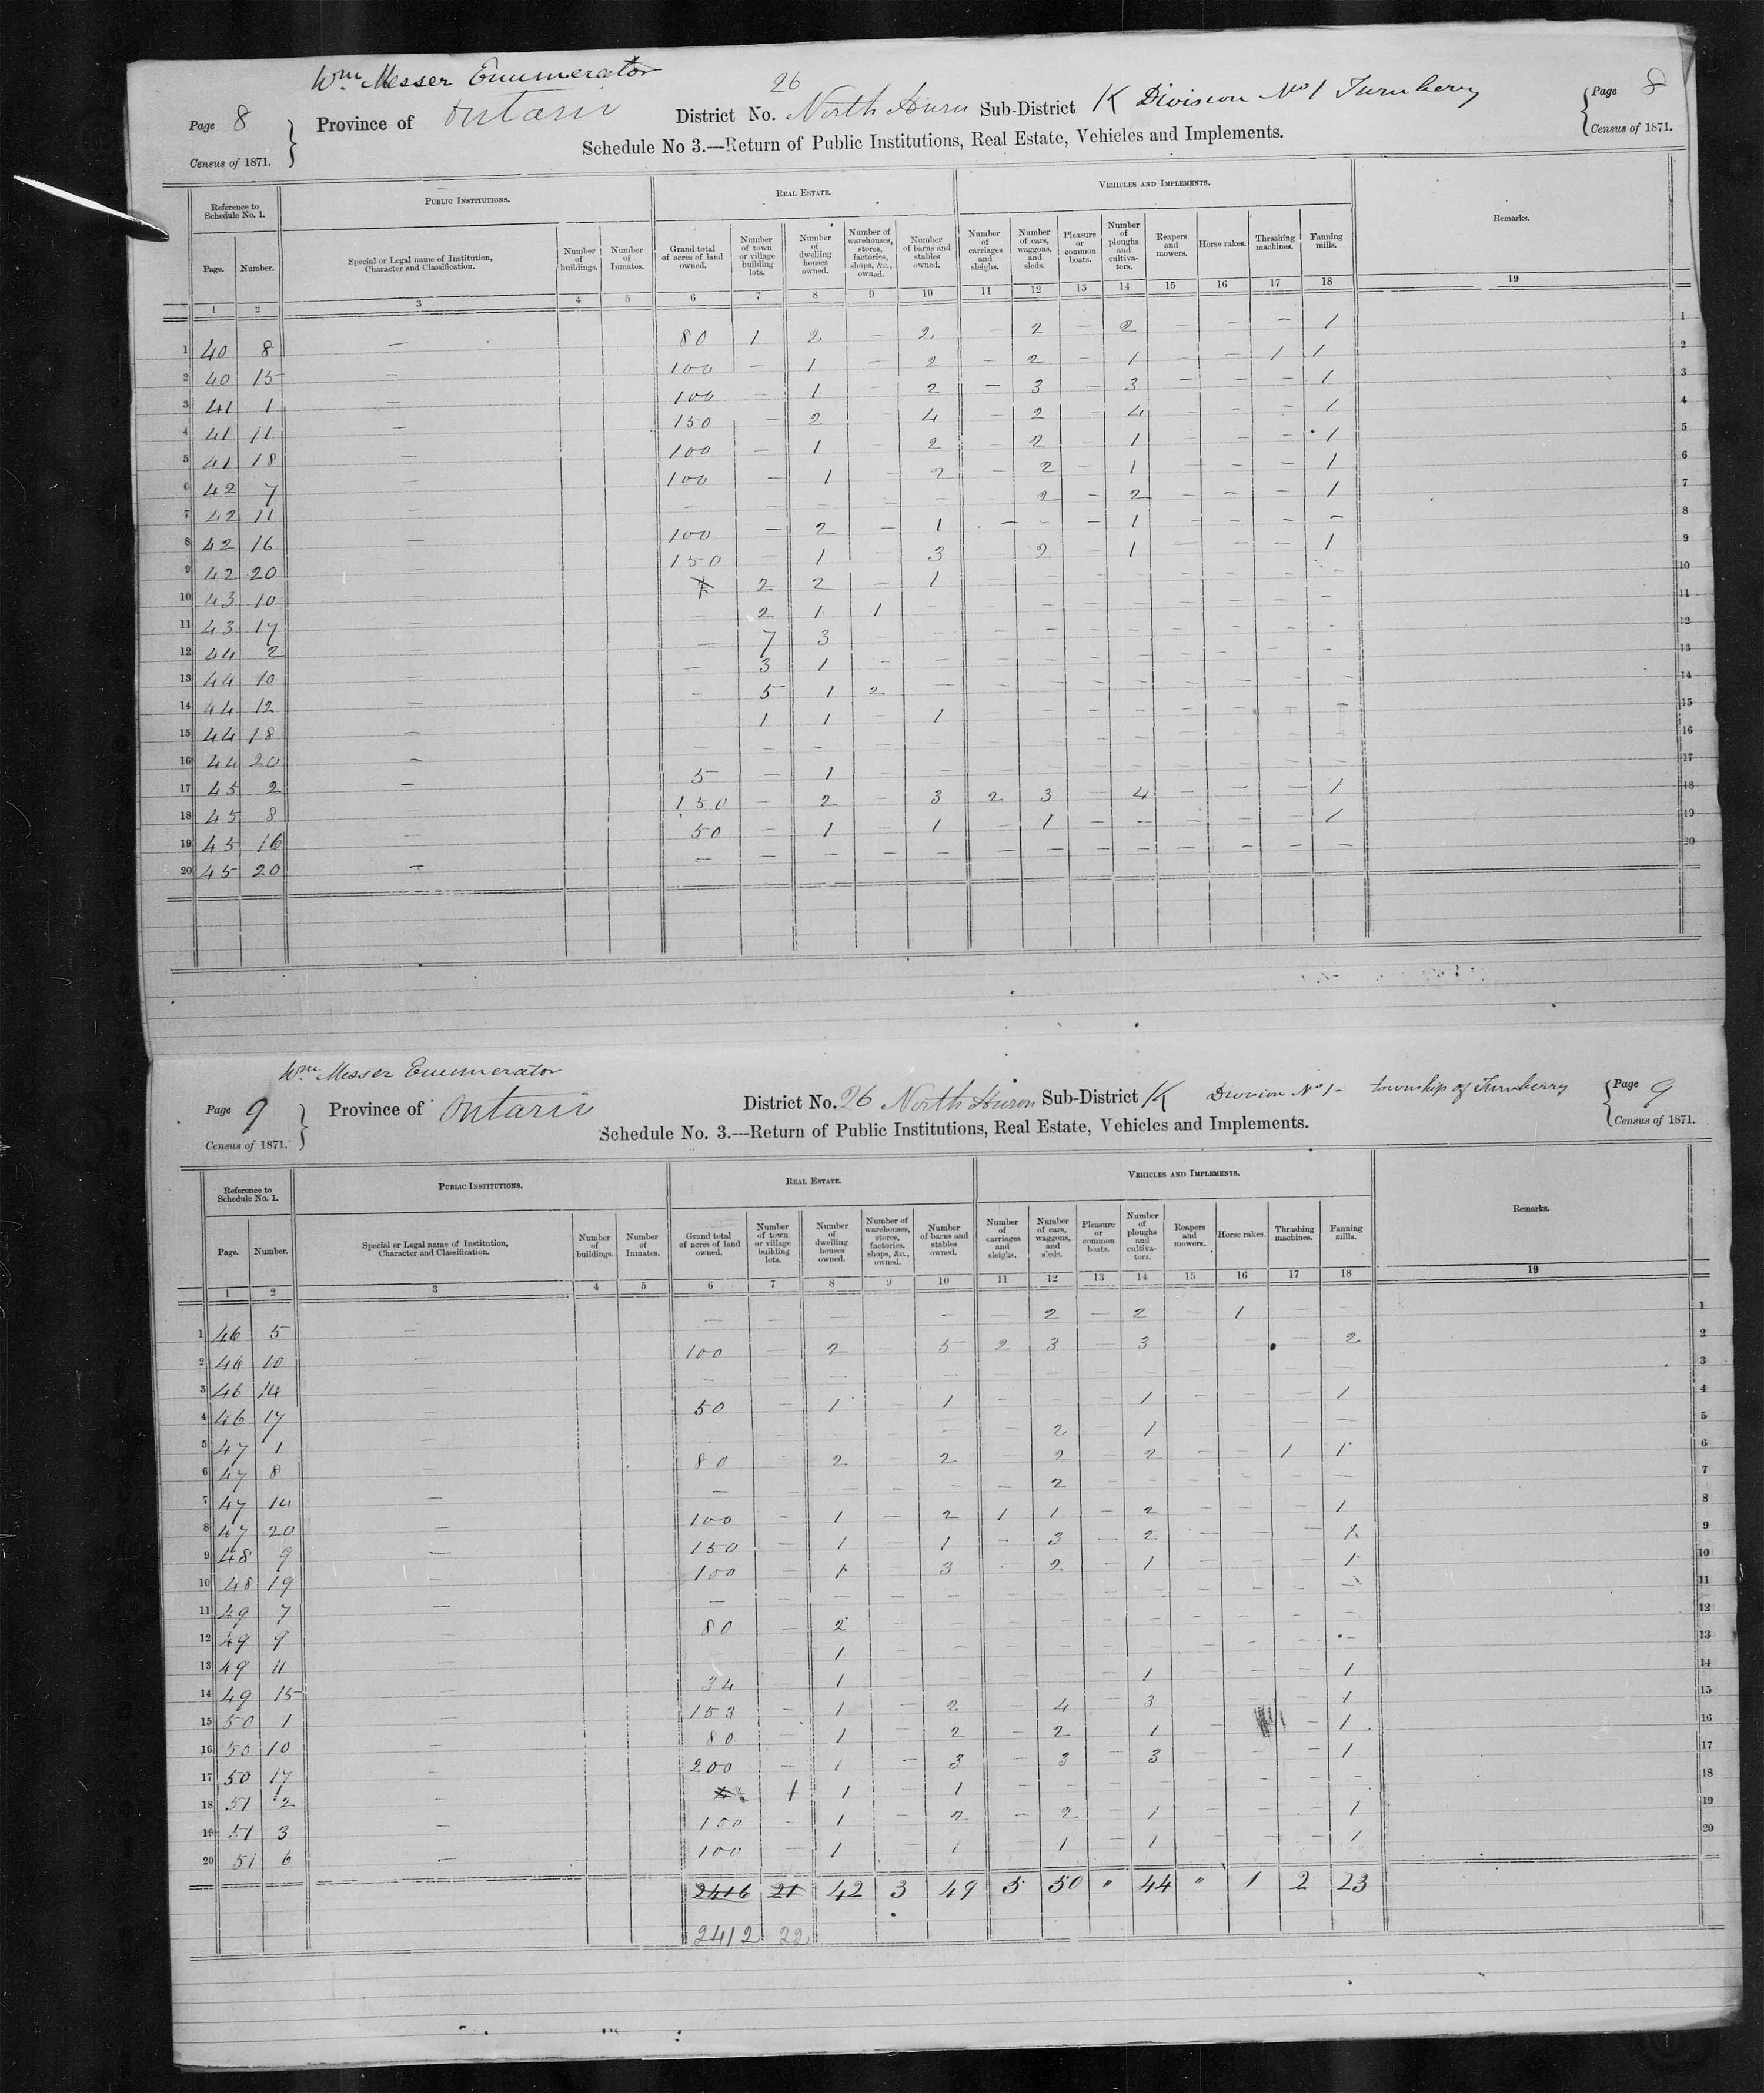 Wm Messer Enumerator
Page 8 Province of Ontario District No. 26 North Huron Sub-District K Division No 1 Turnberry Page 8
Census of 1871. Schedule No 3.—Return of Public Institutions, Real Estate, Vehicles and Implements. Census of 1871.
Reference to Schedule No. 1. PUBLIC INSTITUTIONS. REAL ESTATE. VEHICLES AND IMPLEMENTS. Remarks.
Page. Number. Special or Legal name of Institution, Character and Classification. Number of buildings. Number of Inmates. Grand total of acres of land owned. Number of town or village building lots. Number of dwelling houses owned. Number of warehouses, stores, factories, shops, &c., owned. Number of barns and stables owned. Number of carriages and sleighs. Number of cars, waggons, and sleds. Pleasure or common boats. Number of ploughs and cultiva-tors. Reapers and mowers. Horse rakes. Thrashing machines. Fanning mills.
1 2 3 4 5 6 7 8 9 10 11 12 13 14 15 16 17 18 19
1 40 8 — 80 1 2 — 2 — 2 — 2 — — — 1 1
2 40 15 — 100 — 1 — 2 — 2 — 1 — — 1 1 2
3 41 1 — 100 — 1 — 2 — 3 — 3 — — — 1 3
4 41 11 — 150 — 2 — 4 — 2 — 4 — — — 1 4
5 41 18 — 100 — 1 — 2 — 2 — 1 — — — 1 5
6 42 7 — 100 — 1 — 2 — 2 — 1 — — — 1 6
7 42 11 — — — — — — — 2 — 2 — — — 1 7
8 42 16 — 100 — 2 — 1 — — — 1 — — — — 8
9 42 20 — 150 — 1 — 3 — 2 — 1 — — — 1 9
10 43 10 — 2 2 — 1 — — — — — — — — 10
11 43 17 — 2 1 1 — — — — — — 11
12 44 2 — — 7 3 — — — — — — — — — — 12
13 44 10 — — 3 1 — — — — — — — — — — 13
14 44 12 — — 5 1 2 — — — — — — — — — 14
15 44 18 — 1 1 — 1 — — — — — — — — 15
16 44 20 — — — — — — — — — — — — — — 16
17 45 2 — 5 — 1 — — — — — — — — — — 17
18 45 8 150 — 2 — 3 2 3 — 4 — — — 1 18
19 45 16 — 50 — 1 — 1 — 1 — — — — — 1 19
20 45 20 — — — — — — — — — — — — — — 20
Wm Messer Enumerator
Page 9 Province of Ontario District No. 26 North Huron Sub-District K Division No 1 - township of Turnberry Page 9
Census of 1871. Schedule No. 3.—Return of Public Institutions, Real Estate, Vehicles and Implements. Census of 1871.
Reference to Schedule No. 1. PUBLIC INSTITUTIONS. REAL ESTATE. VEHICLES AND IMPLEMENTS. Remarks.
Page. Number. Special or Legal name of Institution, Character and Classification. Number of buildings. Number of Inmates. Grand total of acres of land owned. Number of town or village building lots. Number of dwelling houses owned. Number of warehouses, stores, factories. shops, &c., owned. Number of barns and stables owned. Number of carriages and sleighs. Number of cars, waggons, and sleds. Pleasure or common boats. Number of ploughs and cultiva-tors. Reapers and mowers. Horse rakes. Thrashing machines. Fanning mills.
1 2 3 4 5 6 7 8 9 10 11 12 13 14 15 16 17 18 19
1 46 5 — — — — — — — 2 — 2 — 1 — — 1
2 46 10 — 100 — 2 — 5 2 3 — 3 — — — 2 2
3 46 14 — — — — — — — — — — — — — — 3
4 46 17 — 50 — 1 — 1 — — — 1 — — — 1 4
5 47 1 — — — — — — — 2 — 1 — — — — 5
6 47 8 — 80 2 — 2 2 — 2 — — 1 1 6
7 47 14 — — — — — — — 2 — — — — — — 7
8 47 20 — 100 — 1 — 2 1 1 — 2 — — — 1 8
9 48 9 — 150 — 1 — 1 — 3 — 2 — — — 1 9
10 48 19 — 100 — 1 — 3 2 — 1 — — — 1 10
11 49 7 — — — — — — — — — — — — — — 11
12 49 9 — 80 — 2 — — — — — — — — — — 12
13 49 11 — 1 — — — — — — — — — — 13
14 49 15 — 34 — 1 — — — — — 1 — — — 1 14
15 50 1 — 153 — 1 — 2 — 4 — 3 — — — 1 15
16 50 10 — 80 — 1 — 2 — 2 — 1 — — 1 16
17 50 17 — 200 — 1 — 3 — 3 — 3 — — — 1 17
18 51 2 — 1 1 — 1 — — — — — — — — 18
19 51 3 — 100 — 1 — 2 — 2 — 1 — — — 1 19
20 51 6 — 100 — 1 — 1 1 — 1 — — — 1 20
2416 21 42 3 49 5 50 " 44 " 1 2 23
2412 22